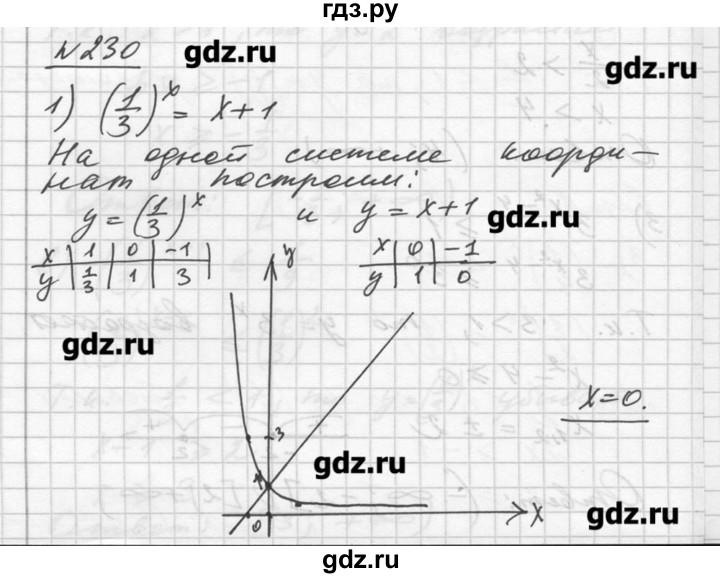 гдз.ру
№230
gdz.ru
gdz.ru
1) (1/3)^x = x+1
На одной системе коорди-
нат построим:
y = (1/3)^x и y = x+1
gdz.ru
x | 1 | 0 | -1
y | 1/3 | 1 | 3
x | 0 | -1
y | 1 | 0
y
gdz.ru
x=0.
3
1
gdz.ru
0
x
gdz.ru
gdz.ru